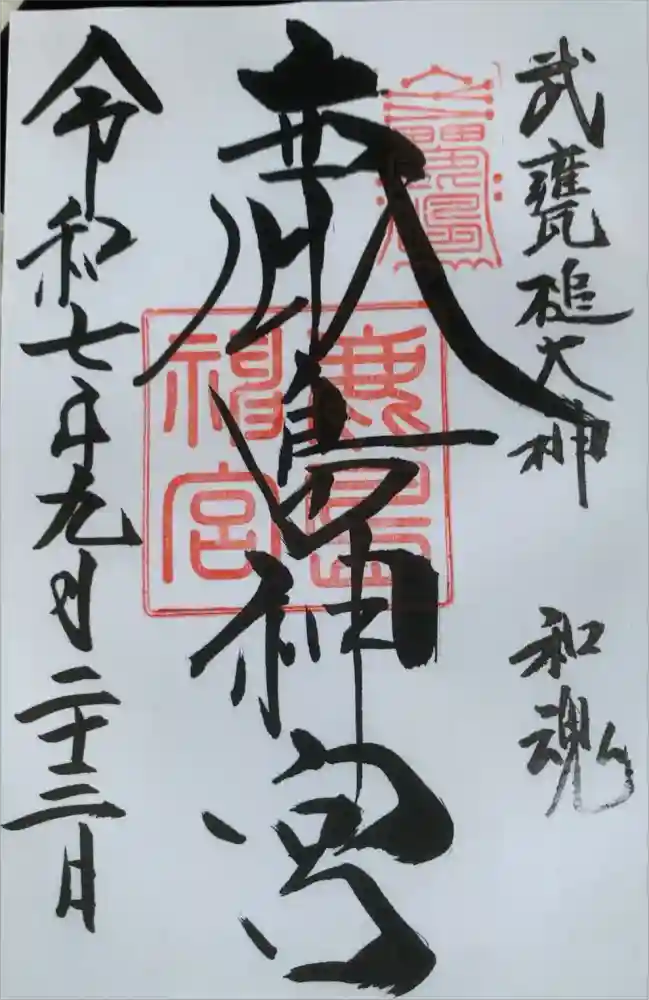 武甕槌大神 和魂
鹿島神宮
鹿島
神宮
令和七年九月二十三日